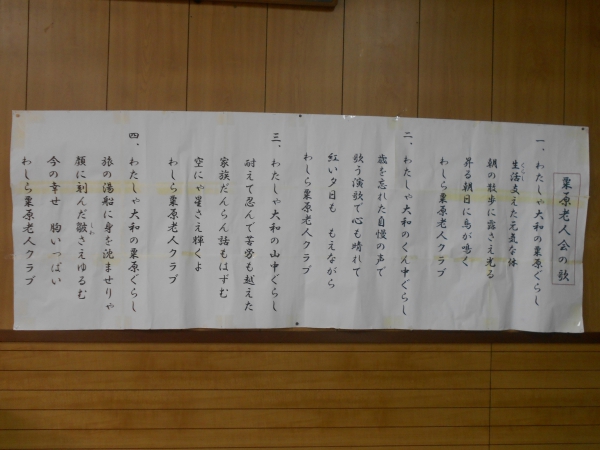 栗原老人会の歌
一、わたしゃ大和の栗原ぐらし
生活支えた元気な体
くらし
朝の散歩に露さえ光る
昇る朝日に鳥が鳴く
わしら栗原老人クラブ
二、わたしゃ大和のくん中ぐらし
歳を忘れた自慢の声で
歌う演歌で心も晴れて
紅い夕日も もえながら
わしら栗原老人クラブ
三、わたしゃ大和の山中ぐらし
耐えて忍んで苦労も越えた
家族だんらん話もはずむ
空にゃ星さえ輝くよ
わしら栗原老人クラブ
四、わたしゃ大和の栗原ぐらし
旅の湯船に身を沈ませりゃ
顔に刻んだ皺さえゆるむ
しわ
今の幸せ 胸いっぱい
わしら栗原老人クラブ